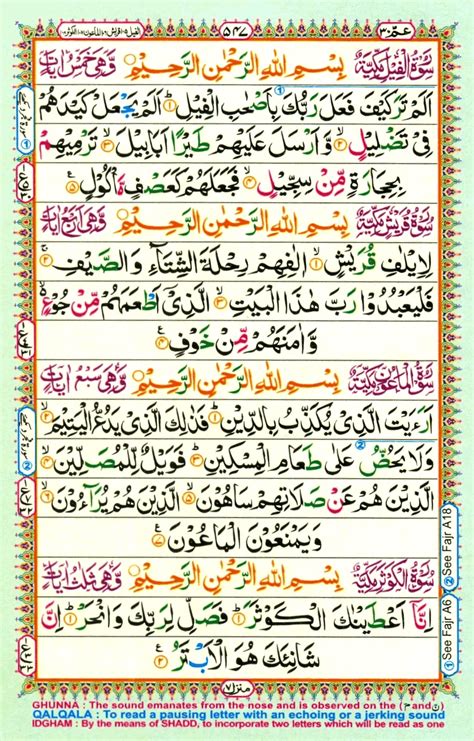 الفیل ۱۰۵ قریش ۱۰۶ الماعون ۱۰۷ الکوثر ۱۰۸
۵۴۷
عمّ ۳۰
سُوْرَةُ الْفِيْلِ مَكِّيَّةٌ بِسْمِ اللّٰهِ الرَّحْمٰنِ الرَّحِيْمِ وَهِيَ خَمْسُ اٰيَاتٍ
اَلَمْ تَرَ كَيْفَ فَعَلَ رَبُّكَ بِاَصْحٰبِ الْفِيْلِ ۱ اَلَمْ يَجْعَلْ كَيْدَهُمْ
فِيْ تَضْلِيْلٍ ۲ وَّ اَرْسَلَ عَلَيْهِمْ طَيْرًا اَبَابِيْلَ ۳ تَرْمِيْهِمْ
بِحِجَارَةٍ مِّنْ سِجِّيْلٍ ۴ فَجَعَلَهُمْ كَعَصْفٍ مَّاْكُوْلٍ ۵
سُوْرَةُ قُرَيْشٍ مَّكِّيَّةٌ بِسْمِ اللّٰهِ الرَّحْمٰنِ الرَّحِيْمِ وَهِيَ اَرْبَعُ اٰيَاتٍ
لِاِيْلٰفِ قُرَيْشٍ ۱ اٖلٰفِهِمْ رِحْلَةَ الشِّتَآءِ وَ الصَّيْفِ ۲
فَلْيَعْبُدُوْا رَبَّ هٰذَا الْبَيْتِ ۳ الَّذِيْٓ اَطْعَمَهُمْ مِّنْ جُوْعٍ
وَّ اٰمَنَهُمْ مِّنْ خَوْفٍ ۴
سُوْرَةُ الْمَاعُوْنِ مَكِّيَّةٌ بِسْمِ اللّٰهِ الرَّحْمٰنِ الرَّحِيْمِ وَهِيَ سَبْعُ اٰيَاتٍ
اَرَءَيْتَ الَّذِيْ يُكَذِّبُ بِالدِّيْنِ ۱ فَذٰلِكَ الَّذِيْ يَدُعُّ الْيَتِيْمَ ۲
وَ لَا يَحُضُّ عَلٰى طَعَامِ الْمِسْكِيْنِ ۳ فَوَيْلٌ لِّلْمُصَلِّيْنَ ۴
الَّذِيْنَ هُمْ عَنْ صَلَاتِهِمْ سَاهُوْنَ ۵ الَّذِيْنَ هُمْ يُرَآءُوْنَ ۶
وَ يَمْنَعُوْنَ الْمَاعُوْنَ ۷
سُوْرَةُ الْكَوْثَرِ مَكِّيَّةٌ بِسْمِ اللّٰهِ الرَّحْمٰنِ الرَّحِيْمِ وَهِيَ ثَلٰثُ اٰيَاتٍ
اِنَّآ اَعْطَيْنٰكَ الْكَوْثَرَ ۱ فَصَلِّ لِرَبِّكَ وَ انْحَرْ ۲ اِنَّ
شَانِئَكَ هُوَ الْاَبْتَرُ ۳
② See Fajr A18
① See Fajr A6
منزل ۷
GHUNNA : The sound emanates from the nose and is observed on the (ن and م)
QALQALA : To read a pausing letter with an echoing or a jerking sound
IDGHAM : By the means of SHADD, to incorporate two letters which will be read as one